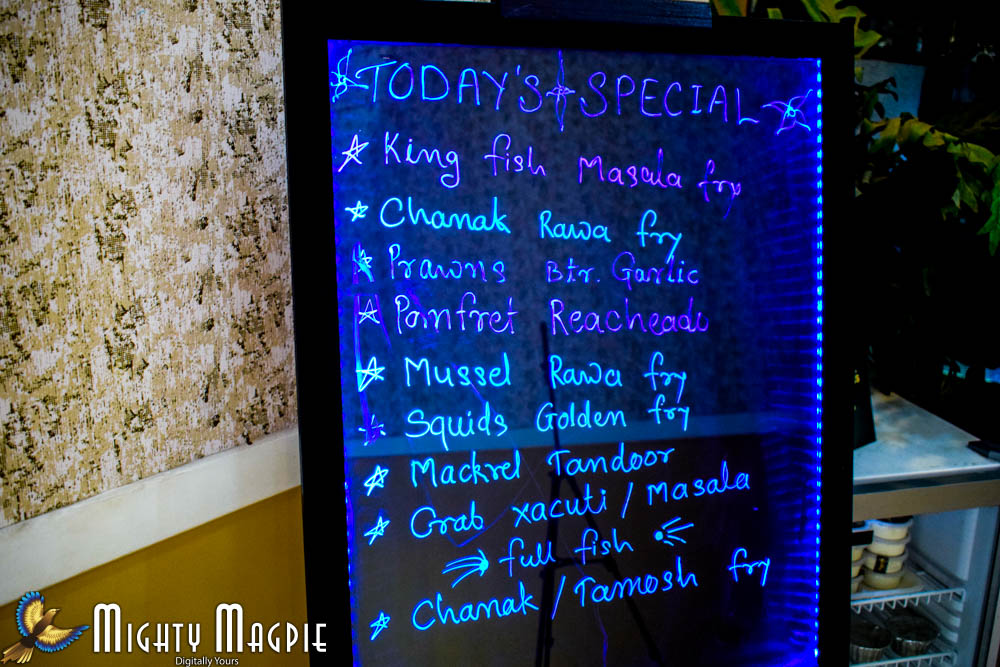 TODAY'S SPECIAL
King fish Masala fry
Chanak Rawa fry
Prawns Btr. Garlic
Pomfret Reacheado
Mussel Rawa fry
Squids Golden fry
Mackrel Tandoor
Crab xacuti / Masala
full fish
Chanak / Tamosh fry
MIGHTY MAGPIE
Digitally Yours